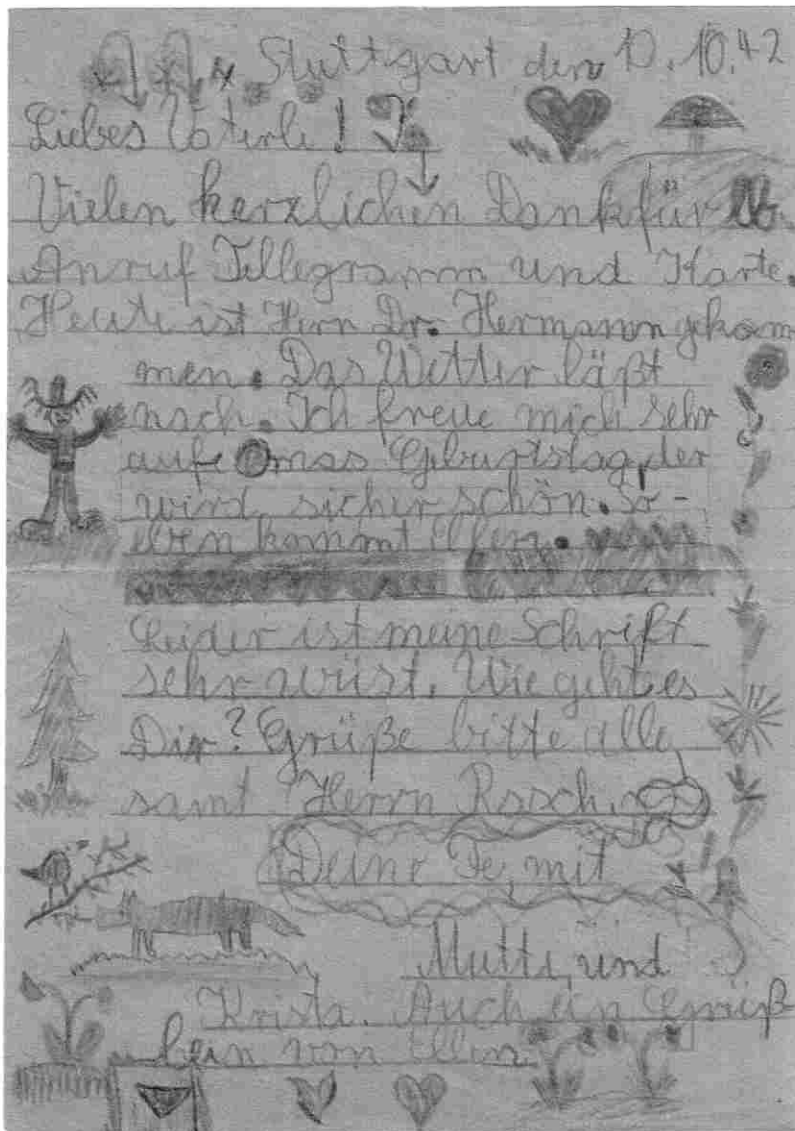 Stuttgart den 10.10.42
Liebes Vaterle!
Vielen herzlichen Dank für lb.
Anruf Tellegramm und Karte.
Heute ist Herrn Dr. Hermann gekom
men. Das Wetter läßt
nach. Ich freue mich sehr
auf Omas Geburtstag, der
wird sicher schön. So-
eben kommt Ellen.
Leider ist meine Schrift
sehr wüst. Wie geht es
Dir? Grüße bitte alle
samt Herrn
Deine Te mit
Mutti und
Krista. Auch ein Grüß
lein von Ellen